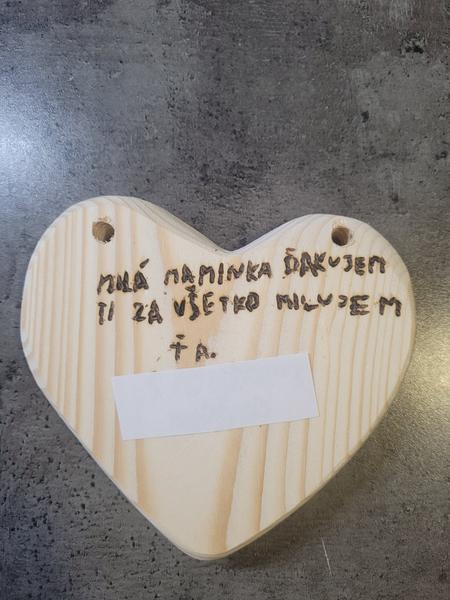 MILÁ MAMINKA ĎAKUJEM
TI ZA VŠETKO MILUJEM
ŤA.